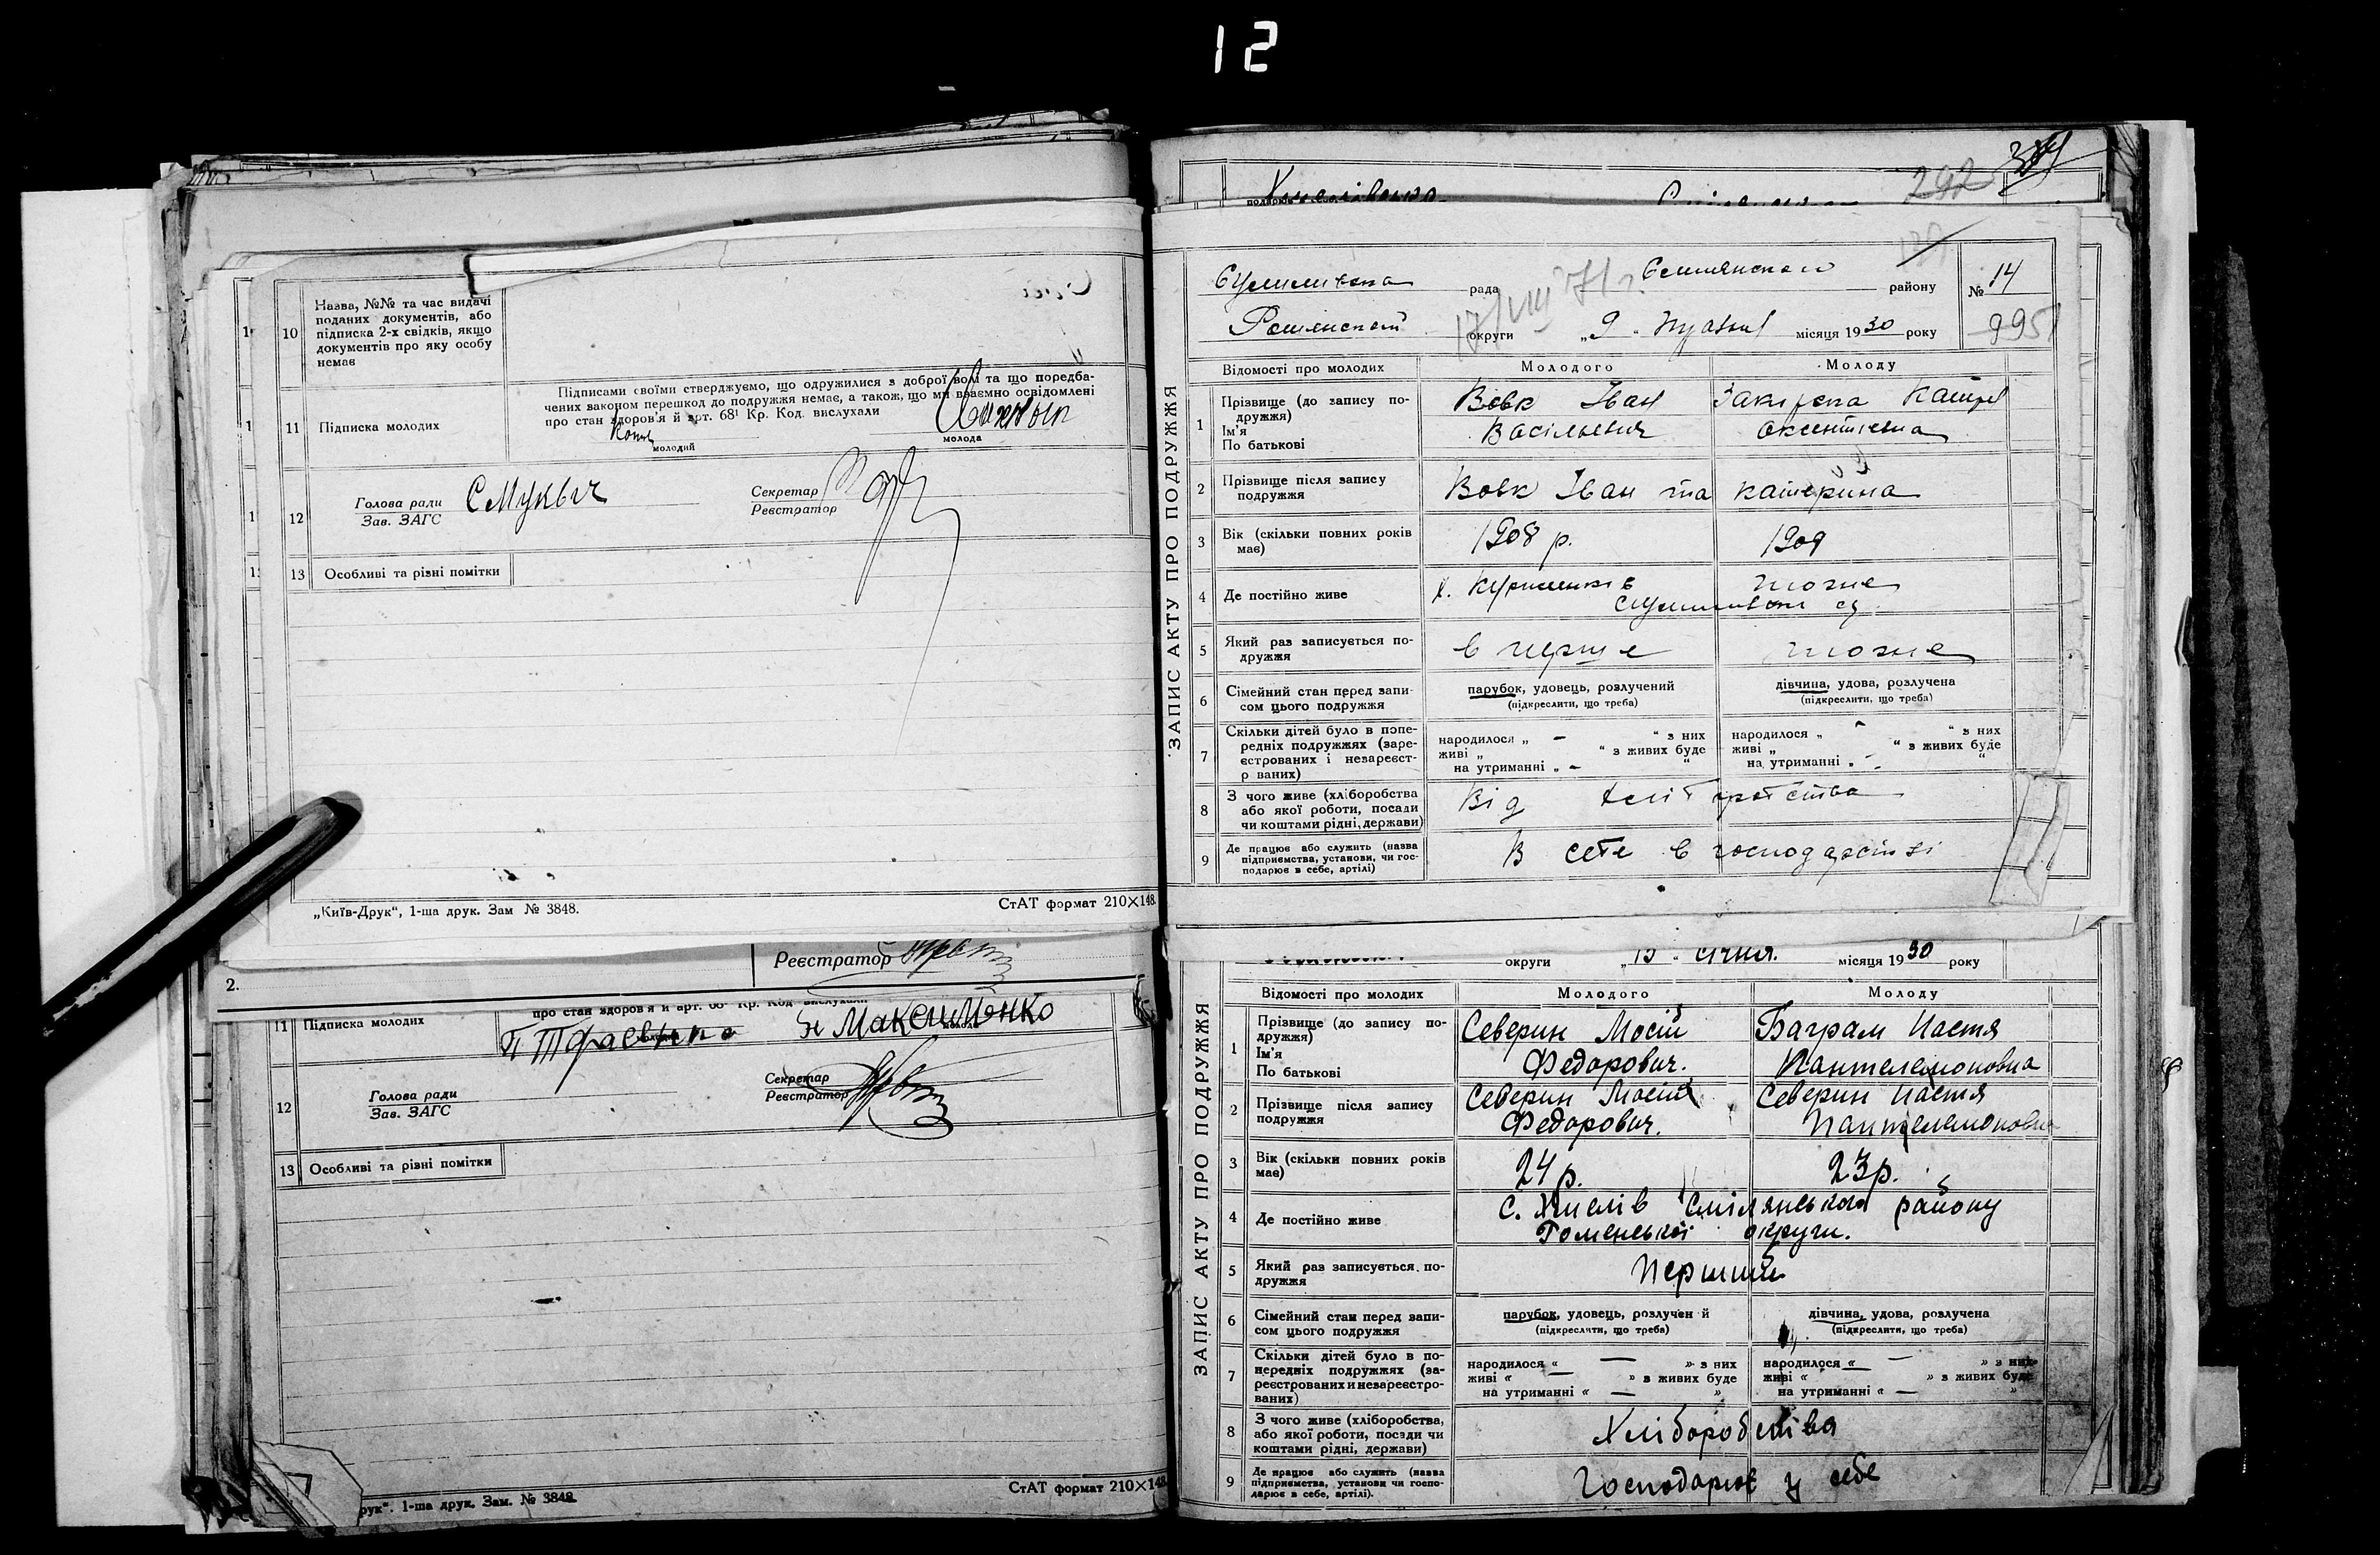 12
10
Назва, №№ та час видачі
поданих документів, або
підписка 2-х свідків, якщо
документів про яку особу
немає
11
Підписка молодих
Підписами своїми стверджуємо, що одружилися з доброї волі та що передба-
чених законом перешкод до подружжя немає, а також, що ми взаємно освідомлені
про стан здоров'я й арт. 68¹ Кр. Код. вислухали
молодий
молода
12
Голова ради
Зав. ЗАГС
Секретар
Реєстратор
13
Особливі та різні помітки
„Київ-Друк“, 1-ша друк. Зам № 3848.
СтАТ формат 210×148.
Реєстратор
2.
11
Підписка молодих
про стан здоров'я й арт. 68¹ Кр. Код вислухали
Максименко
12
Голова ради
Зав. ЗАГС
Секретар
Реєстратор
13
Особливі та різні помітки
рук“. 1-ша друк. Зам. № 3848
СтАТ формат 210×148
292
ЗАПИС АКТУ ПРО ПОДРУЖЖЯ
рада
району
№ 14
округи „9“
місяця 1930 року
995
Відомості про молодих
Молодого
Молоду
1
Прізвище (до запису по-
дружжя)
Ім'я
По батькові
Вовк Іван
Васільевич
2
Прізвище після запису
подружжя
Вовк Іван та Катерина
3
Вік (скільки повних років
має)
1908 р.
1909
4
Де постійно живе
тоже
5
Який раз записується по-
дружжя
в перше
тоже
6
Сімейний стан перед запи-
сом цього подружжя
парубок, удовець, розлучений
(підкреслити, що треба)
дівчина, удова, розлучена
(підкреслити, що треба)
7
Скільки дітей було в попе-
редніх подружжях (заре-
єстрованих і незареєст-
р ваних)
народилося „ - “ з них
живі „ “ з живих буде
на утриманні „ - “
народилося „ - “ з них
живі „ “ з живих буде
на утриманні „ - “
8
З чого живе (хліборобства
або якої роботи, посади
чи коштами рідні, держави)
Від
9
Де працює або служить (назва
підприємства, установи, чи гос-
подарює в себе, артілі)
В себе в господарстві
ЗАПИС АКТУ ПРО ПОДРУЖЖЯ
округи „15“ січня. місяця 1930 року
Відомості про молодих
Молодого
Молоду
1
Прізвище (до запису по-
дружжя)
Ім'я
По батькові
Северин Мосій
Федорович.
Баграм Настя
Пантелемоновна
2
Прізвище після запису
подружжя
Северин Мосій
Федорович.
Северин Настя
Пантелемоновна
3
Вік (скільки повних років
має)
24 р.
23 р.
4
Де постійно живе
с. Хмелів Смілянського району
Роменської округи.
5
Який раз записується по-
дружжя
Перший
6
Сімейний стан перед запи-
сом цього подружжя
парубок, удовець, розлучен й
(підкреслити, що треба)
дівчина, удова, розлучена
(підкреслити, що треба)
7
Скільки дітей було в по-
передніх подружжях (за-
реєстрованих и незареєстро-
ваних)
народилося « — » з них
живі « — » з живих буде
на утриманні « — »
народилося « — » з них
живі « » з живих буде
на утриманні « — »
8
З чого живе (хліборобства,
або якої роботи, посади чи
коштами рідні, держави)
Хліборобства
9
Де працює або служить (назва
підприємства, установи чи госпо-
дарює в себе, артілі).
Господарює у себе